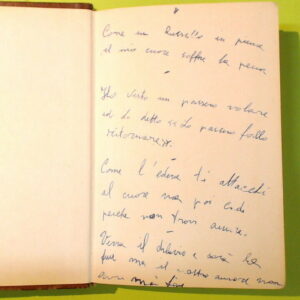 Come un
il mio cuore soffre la pena
Ho visto un passero volare
ed ho detto << Lo passero fallo
ritornare >>.
Come l'edera ti attacchi
al cuore non poi cade
perche non trovi amore.
Verra il diluvio e sarà la
fine ma il altro amore non